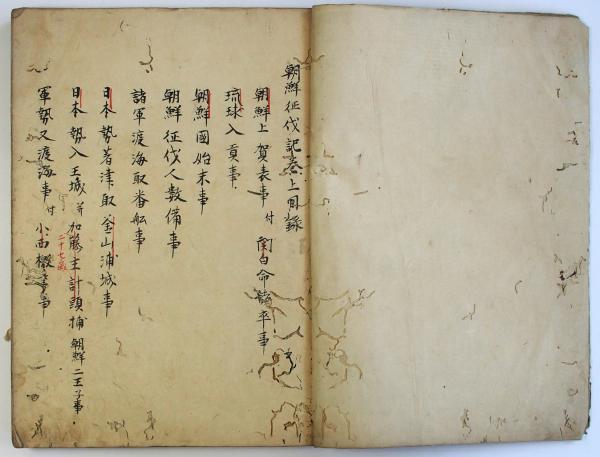 朝鮮征伐記巻上目録
朝鮮上賀表事 付 関白命 卒事
琉球入貢事
朝鮮國始末事
朝鮮征伐人数備事
諸軍渡海取番舩事
日本勢着津取釜山浦城事
日本勢入王城 并 加藤主計頭捕朝鮮二王子事
二十七歳
軍勢又渡海事 付 小西 事